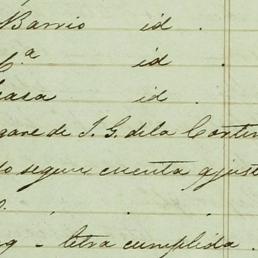 Barrio id .
C.ª id .
casa id .
pagaré de J. G. de la Cortin
do segun cuenta ajust
. . .
- letra cumplida .